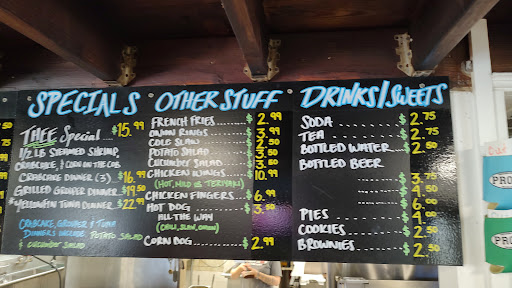 SPECIALS
THEE Special $15.99
1/2 LB STEAMED SHRIMP,
CRABCAKE, & CORN ON THE COB
CRABCAKE DINNER (3) $16.99
GRILLED GROUPER DINNER $19.50
*YELLOWFIN TUNA DINNER $22.99
CRABCAKE, GROUPER & TUNA
DINNERS INCLUDE POTATO SALAD
& CUCUMBER SALAD
OTHER STUFF
FRENCH FRIES $2.99
ONION RINGS $3.99
COLE SLAW $2.50
POTATO SALAD $2.50
CUCUMBER SALAD $3.50
CHICKEN WINGS $10.99
(HOT, MILD OR TERIYAKI)
CHICKEN FINGERS $6.99
HOT DOG $3.50
ALL THE WAY
(CHILI, SLAW, ONION)
CORN DOG $2.99
DRINKS/SWEETS
SODA $2.75
TEA $2.75
BOTTLED WATER $2.50
BOTTLED BEER
$3.75
$4.50
$6.00
PIES $4.00
COOKIES $2.50
BROWNIES $2.50
PRO